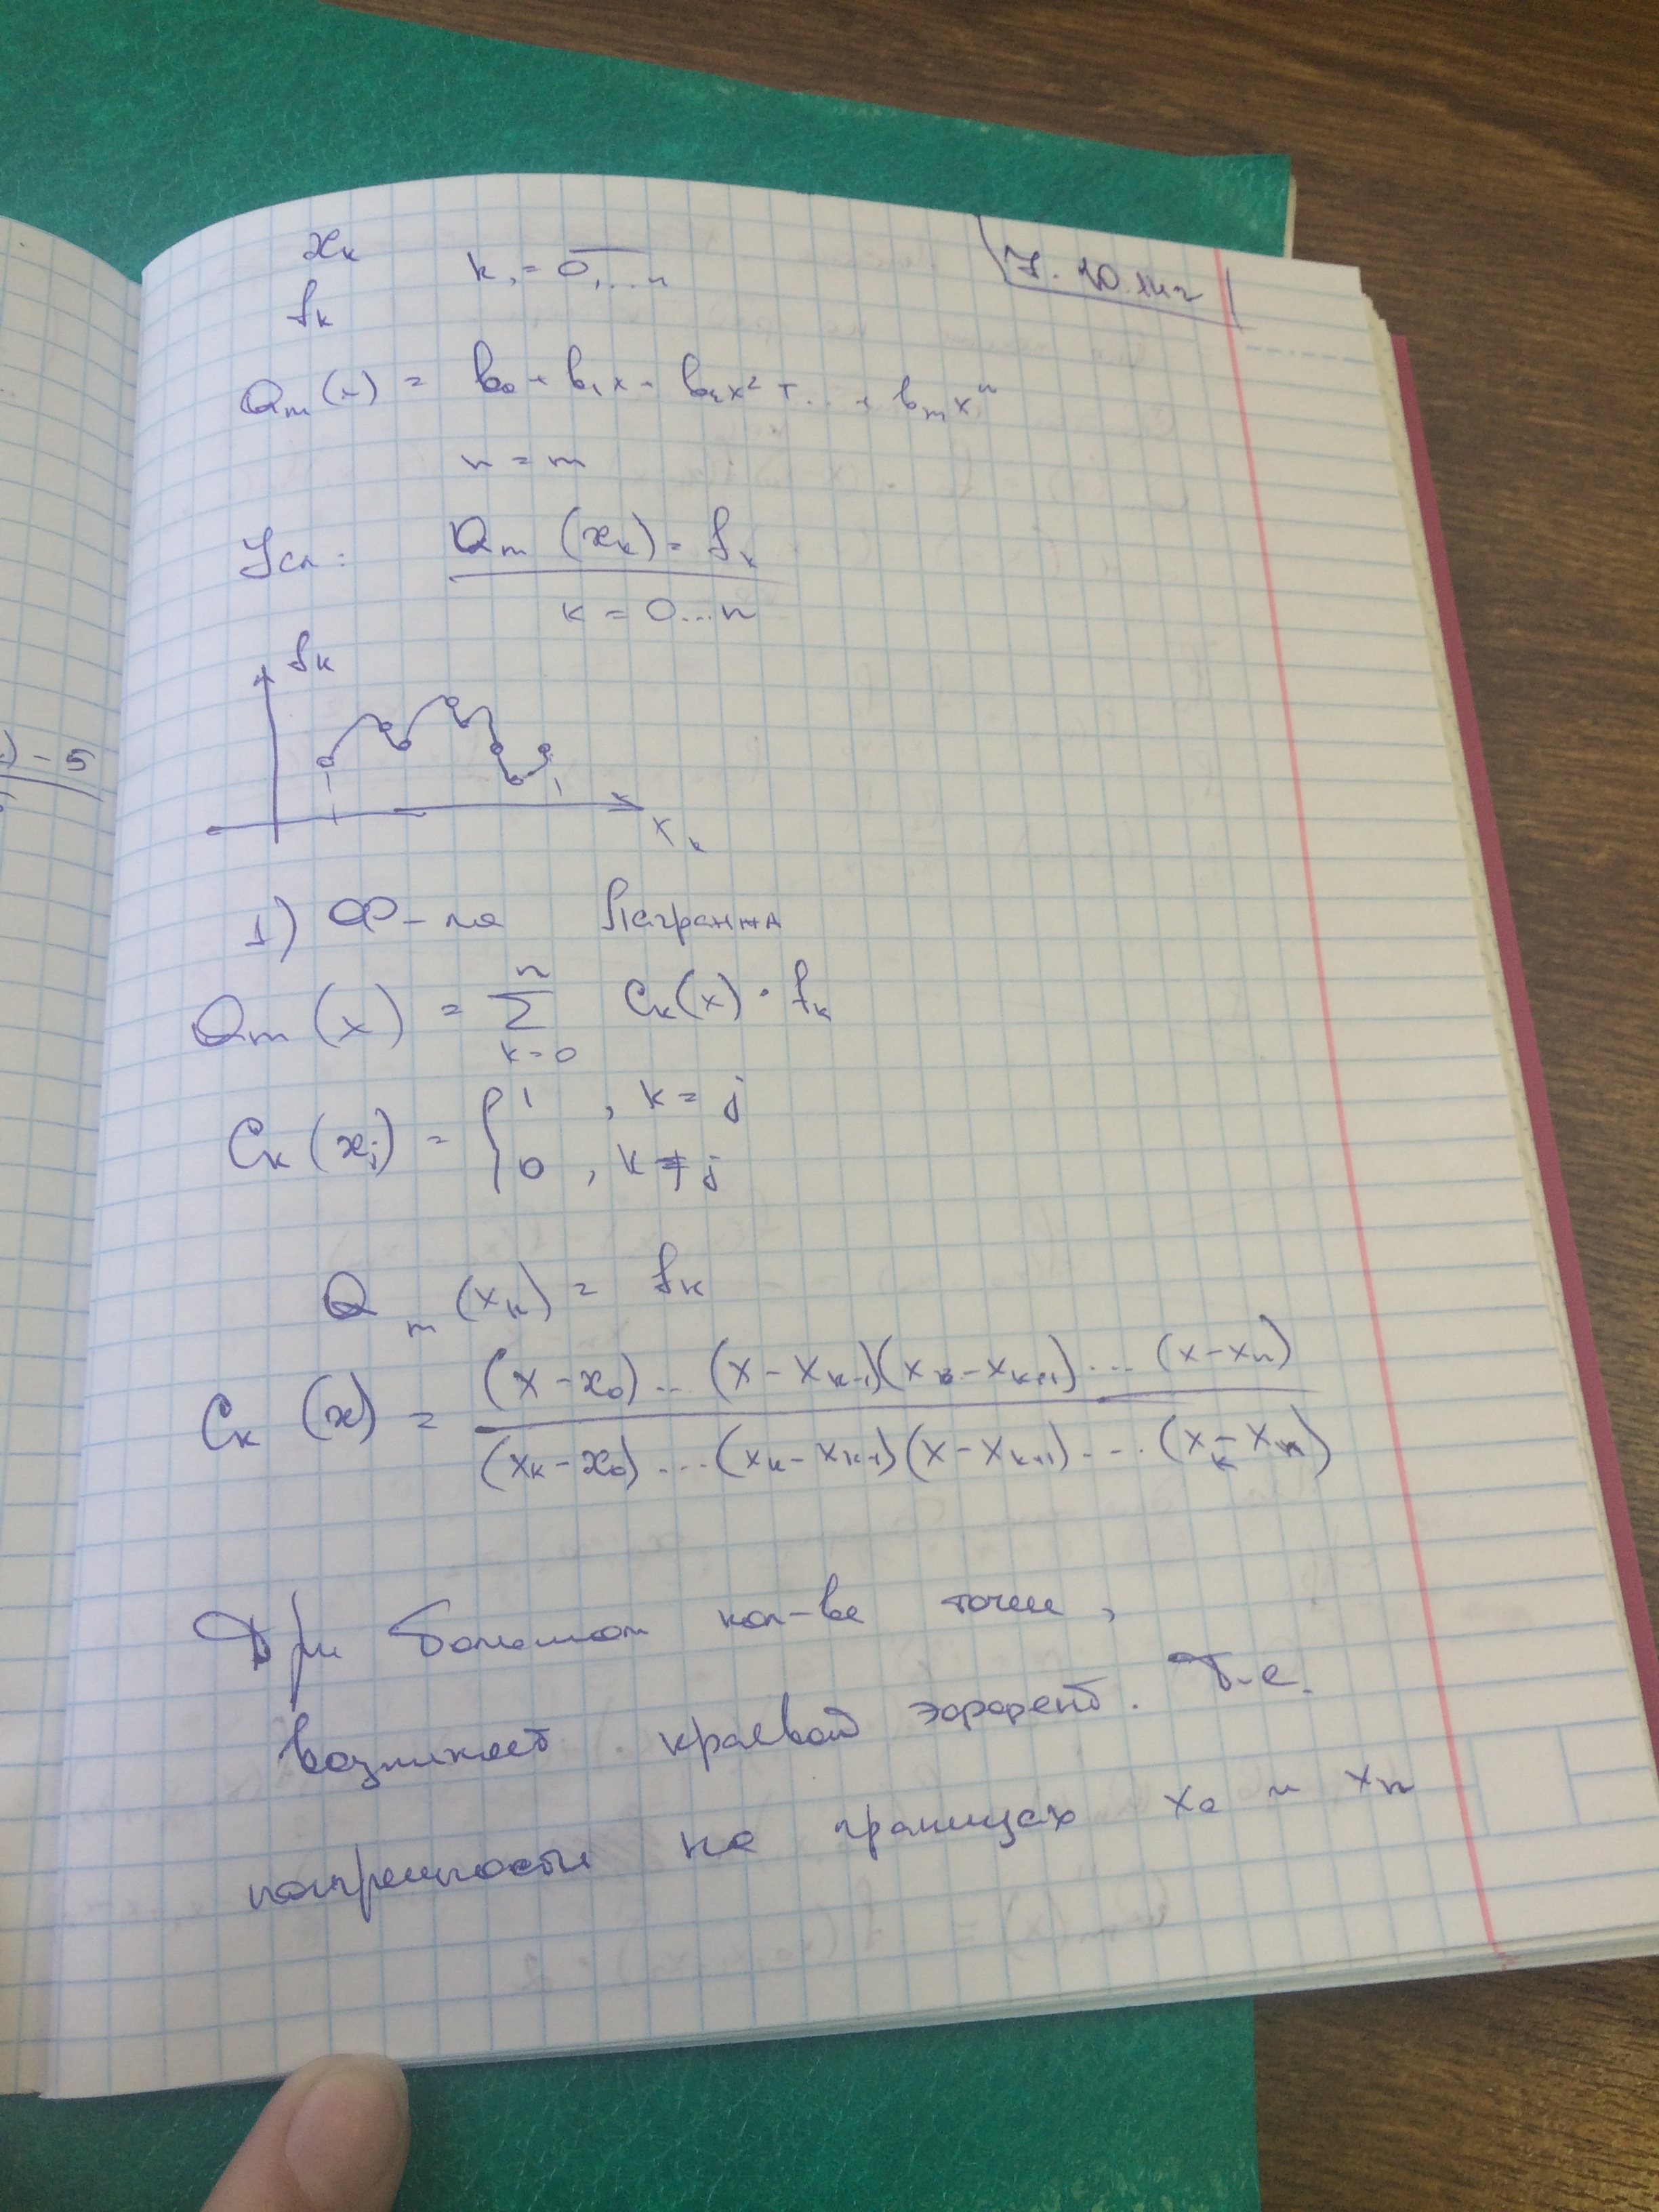 x_k
k = 0,...n
f_k
Q_m(x) = b_0 + b_1 x + b_2 x^2 + ... + b_m x^n
n = m
Усл: Q_m (x_k) = f_k
k = 0...n
f_k
x_k
1) Ф-ла Лагранжа
Q_m (x) = Σ_{k=0}^{n} C_k(x) · f_k
C_k (x_j) = { 1 , k = j
0 , k ≠ j
Q_m (x_k) = f_k
C_k (x) = (x - x_0) ... (x - x_{k-1})(x_k - x_{k+1}) ... (x - x_n)
(x_k - x_0) ... (x_k - x_{k-1})(x - x_{k+1}) ... (x_k - x_n)
При большом кол-ве точек,
возникает краевой эффект. Т.е.
погрешности на границах x_0 и x_n
) - 5